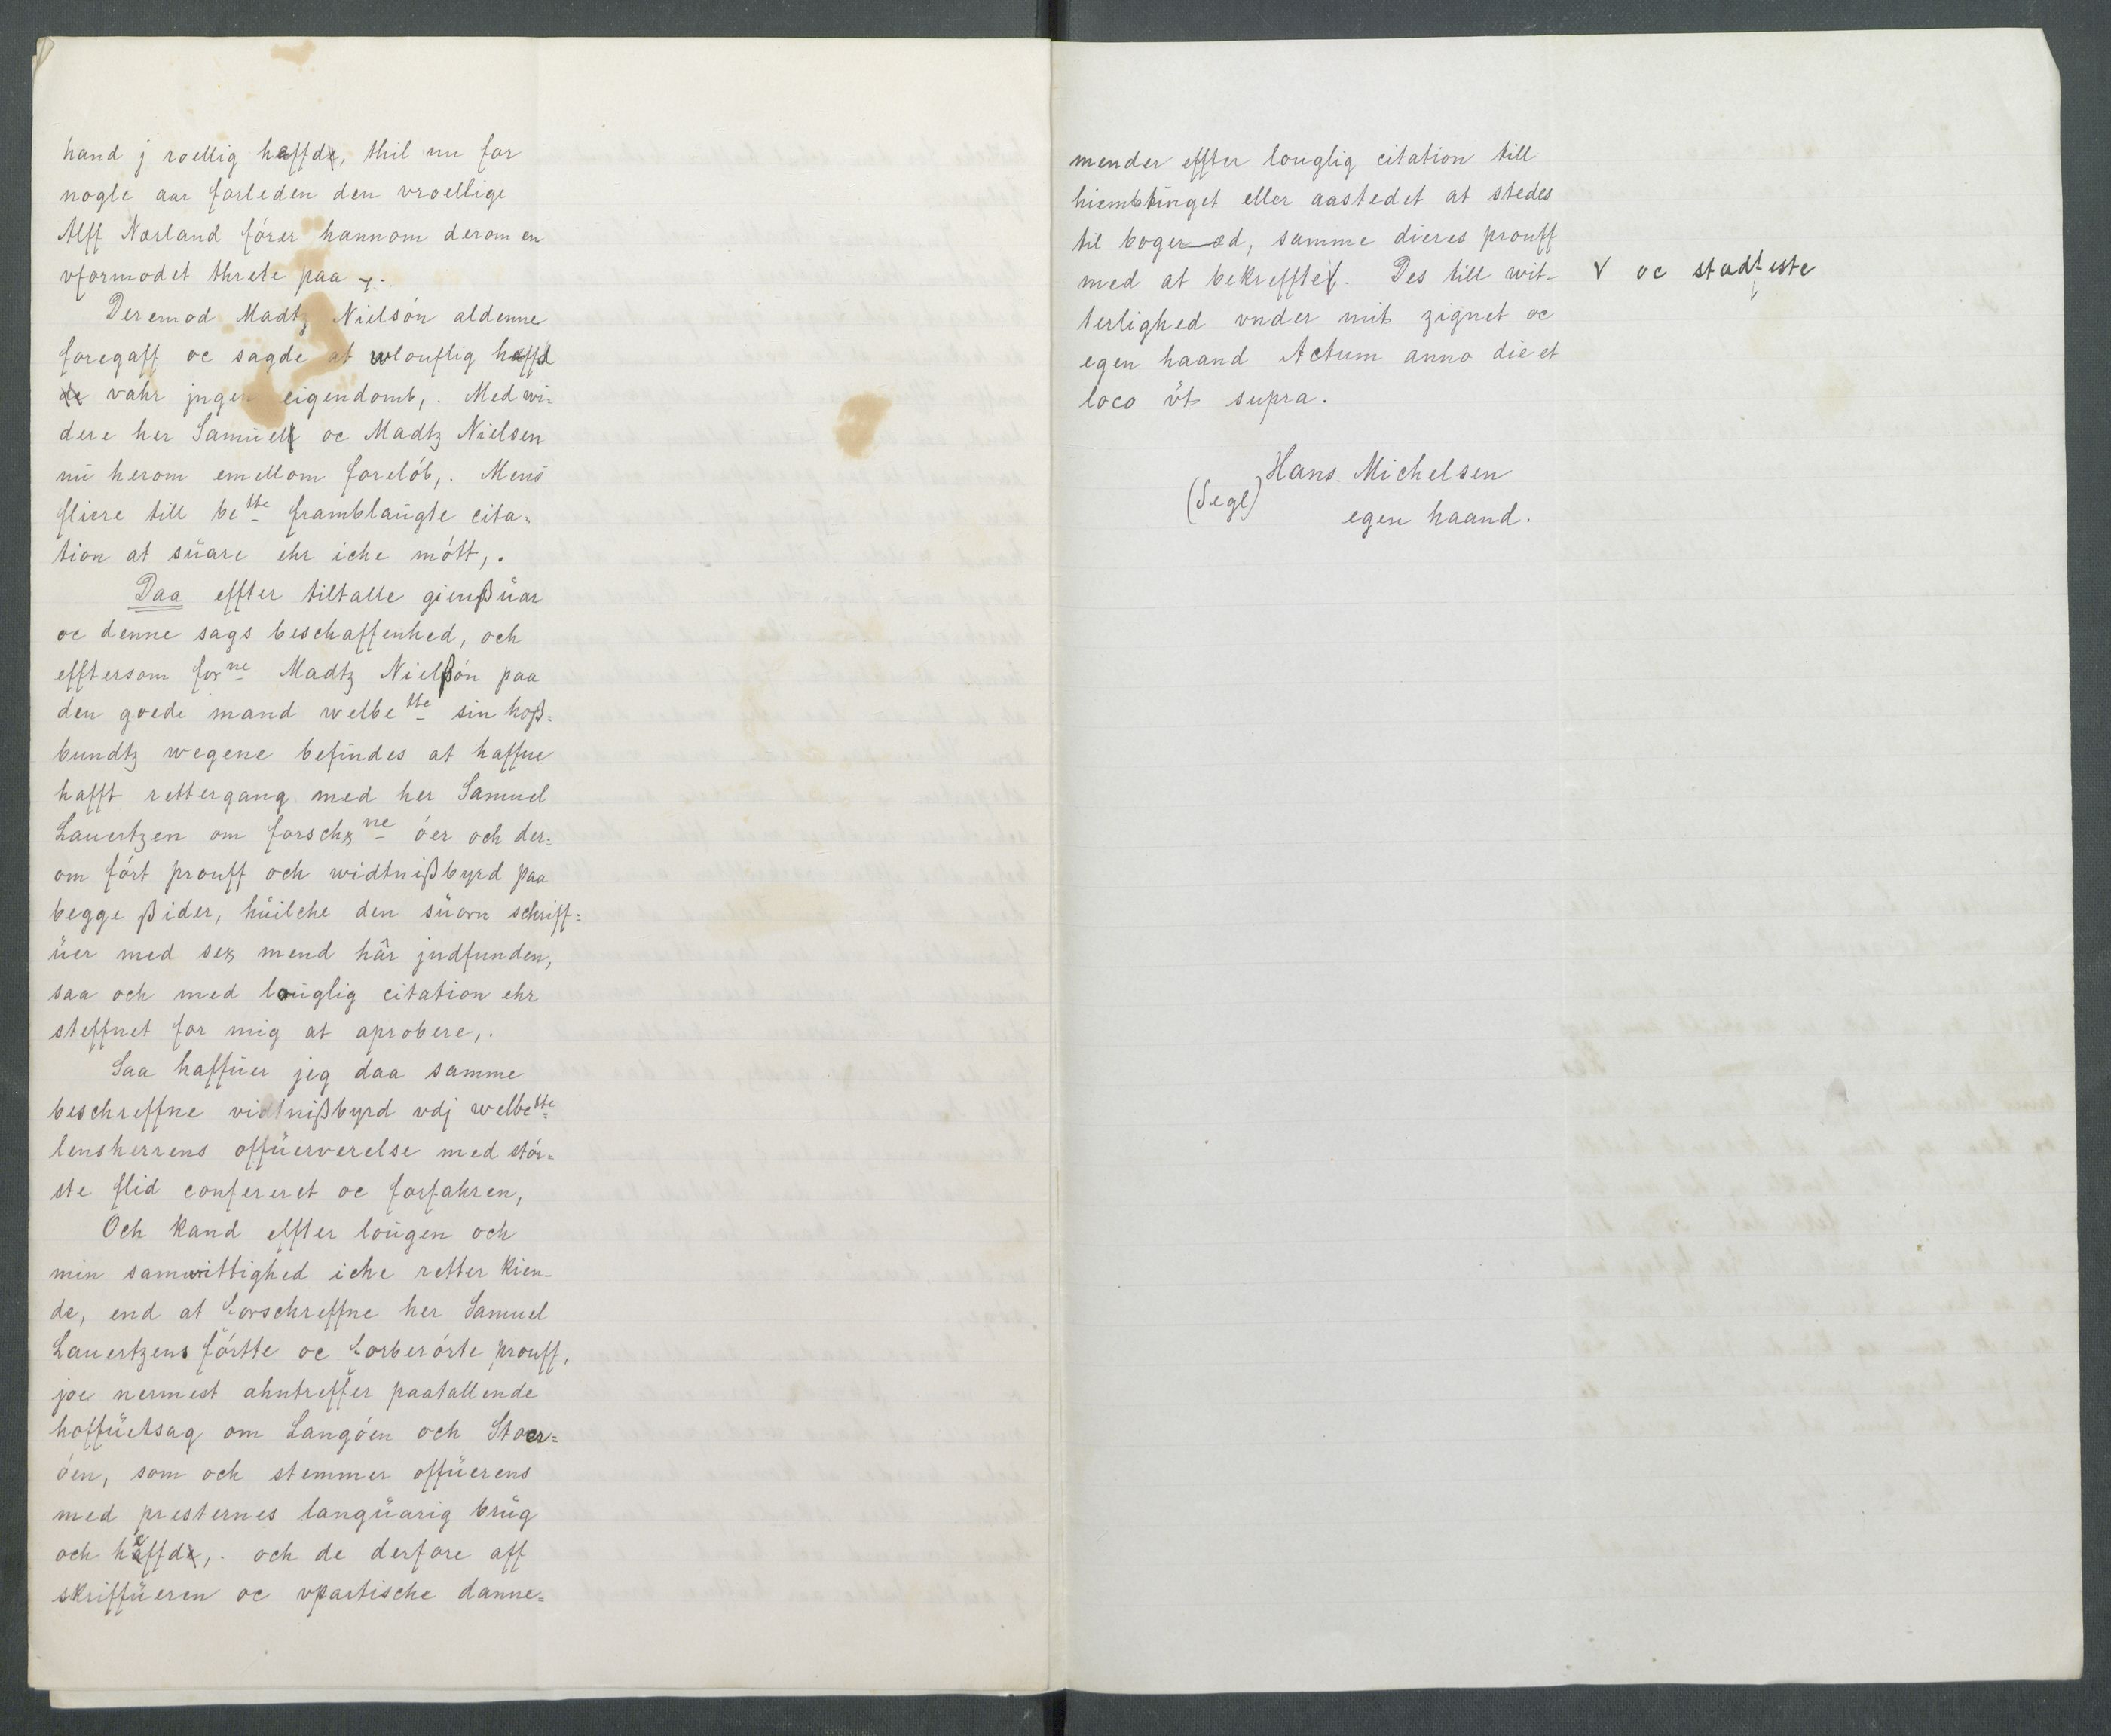 hand j roellig heffd, thil nu for
nogle aar forleden den vroellige
Alff Nærland fører hannom derom en
vformodet threte paa ⁊.
Deremod Madtz Nielsón aldenne
foregaff oc sagde at wlouflig heffd
de vahr jngen eigendomb,. Med wi-
dere her Samüell oc Madtz Nielsen
nü herom emellom forelób,. Mens
fliere till be^tte framblaügte cita=
tion at süare ehr iche mótt,.
Daa effter tiltalle gienßüar
oc denne sags beschaffenhed, och
efftersom for^ne Madtz Nielßón paa
den goede mand welbe^tte sin hoß=
bundtz wegene befindes at haffue
hafft rettergang med her Samuel
Lauertzen om forsch^ne óer och der=
om fórt prouff och widtnißbyrd paa
begge ßider, hüilche den süorn schriff=
üer med sex mend hâr jndfunden,
saa och med loüglig citation ehr
steffnet for mig at aprobere,.
Saa haffüer jeg daa samme
beschreffne vidtnißbyrd vdj welbe^tte
lensherrens offüerverelse med stór=
ste flid confereret oc forfahren,
Och kand effter loügen och
min samwittighed iche retter kien-
de, end at forschreffne her Samuel
Lauertzens fórtte oc forberórte prouff,
joe nermest ahntreffer paatallende
hoffüetsag om Langóen och Stoer=
óen, som och stemmer offüerens
med presternes langüarig brüg
och heffd,. och de derfore aff
skriffüeren oc vpartische danne=
mender effter louglig citation till
hiembtinget eller aastedet at stedes
til boger æd, samme dieres prouff
med at bekreffte. Des till wit- √ oc stadfeste
terlighed vnder mit zignet oc
egen haand Actum anno die et
loco üt supra.
Hans Michelsen
(Segl) egen haand.